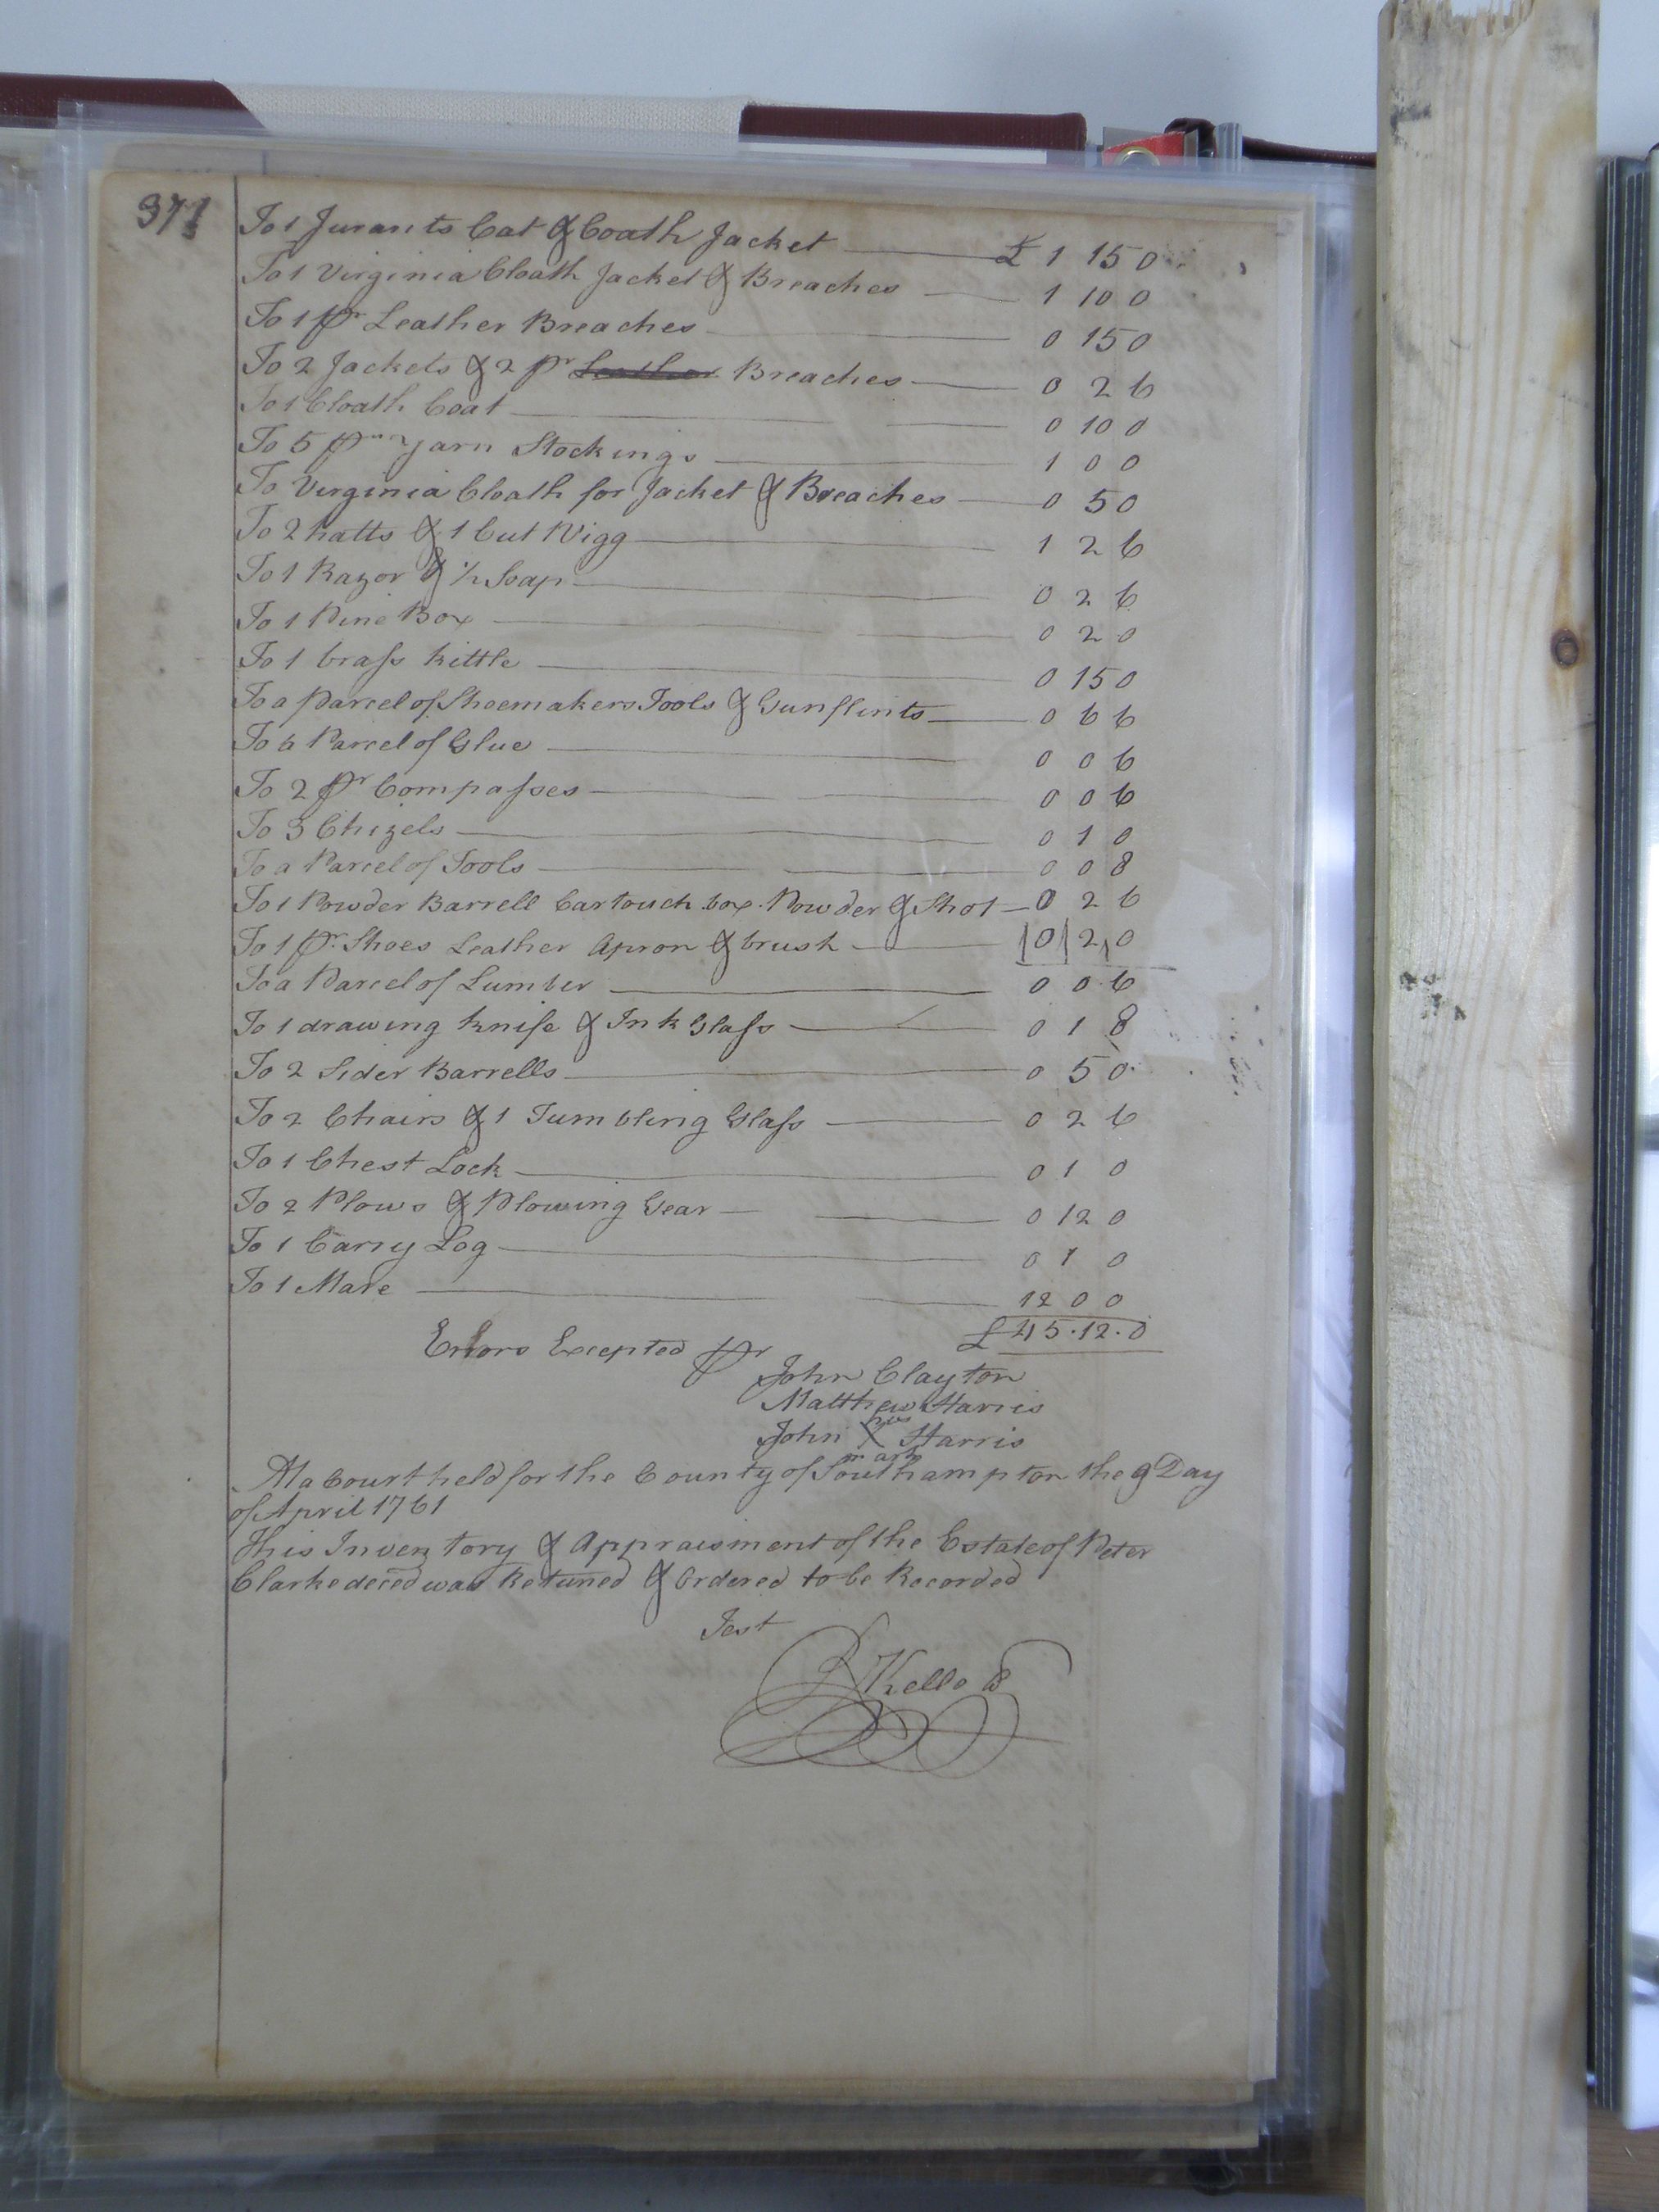 371
To 1 Jurants Cat & Coath Jacket £ 1 15 0
To 1 Virginia Cloath Jacket & Breaches 1 10 0
To 1 pr Leather Breaches 0 15 0
To 2 Jackets & 2 pr Leather Breaches 0 2 6
To 1 Cloath Coat 0 10 0
To 5 pr Yarn Stockings 1 0 0
To Virginia Cloath for Jacket & Breaches 0 5 0
To 2 hatts & 1 Cut Wigg 1 2 6
To 1 Razor & 1/2 Soap 0 2 6
To 1 Pine Box 0 2 0
To 1 brass kittle 0 15 0
To a parcel of Shoemakers Tools & Gunflints 0 6 6
To a Parcel of Glue 0 0 6
To 2 pr Compasses 0 0 6
To 3 Chizels 0 1 0
To a Parcel of Tools 0 0 8
To 1 Powder Barrell Cartouch box Powder & Shot 0 2 6
To 1 pr Shoes Leather Apron & brush 0 2 0
To a Parcel of Lumber 0 0 6
To 1 drawing knife & Ink Glass 0 1 8
To 2 Sider Barrells 0 5 0
To 2 Chairs & 1 Tumbling Glass 0 2 6
To 1 Chest Lock 0 1 0
To 2 Plows & Plowing Gear 0 12 0
To 1 Carry Log 0 1 0
To 1 Mare 12 0 0
£ 45.12.0
Errors Excepted pr
John Clayton
Matthew Harris
his
John X Harris
mark
At a Court held for the County of Southampton the 9 Day
of April 1761
This Inventory & Appraisment of the Estate of Peter
Clarke deced was Retuned & Ordered to be Recorded
Test
R Kello